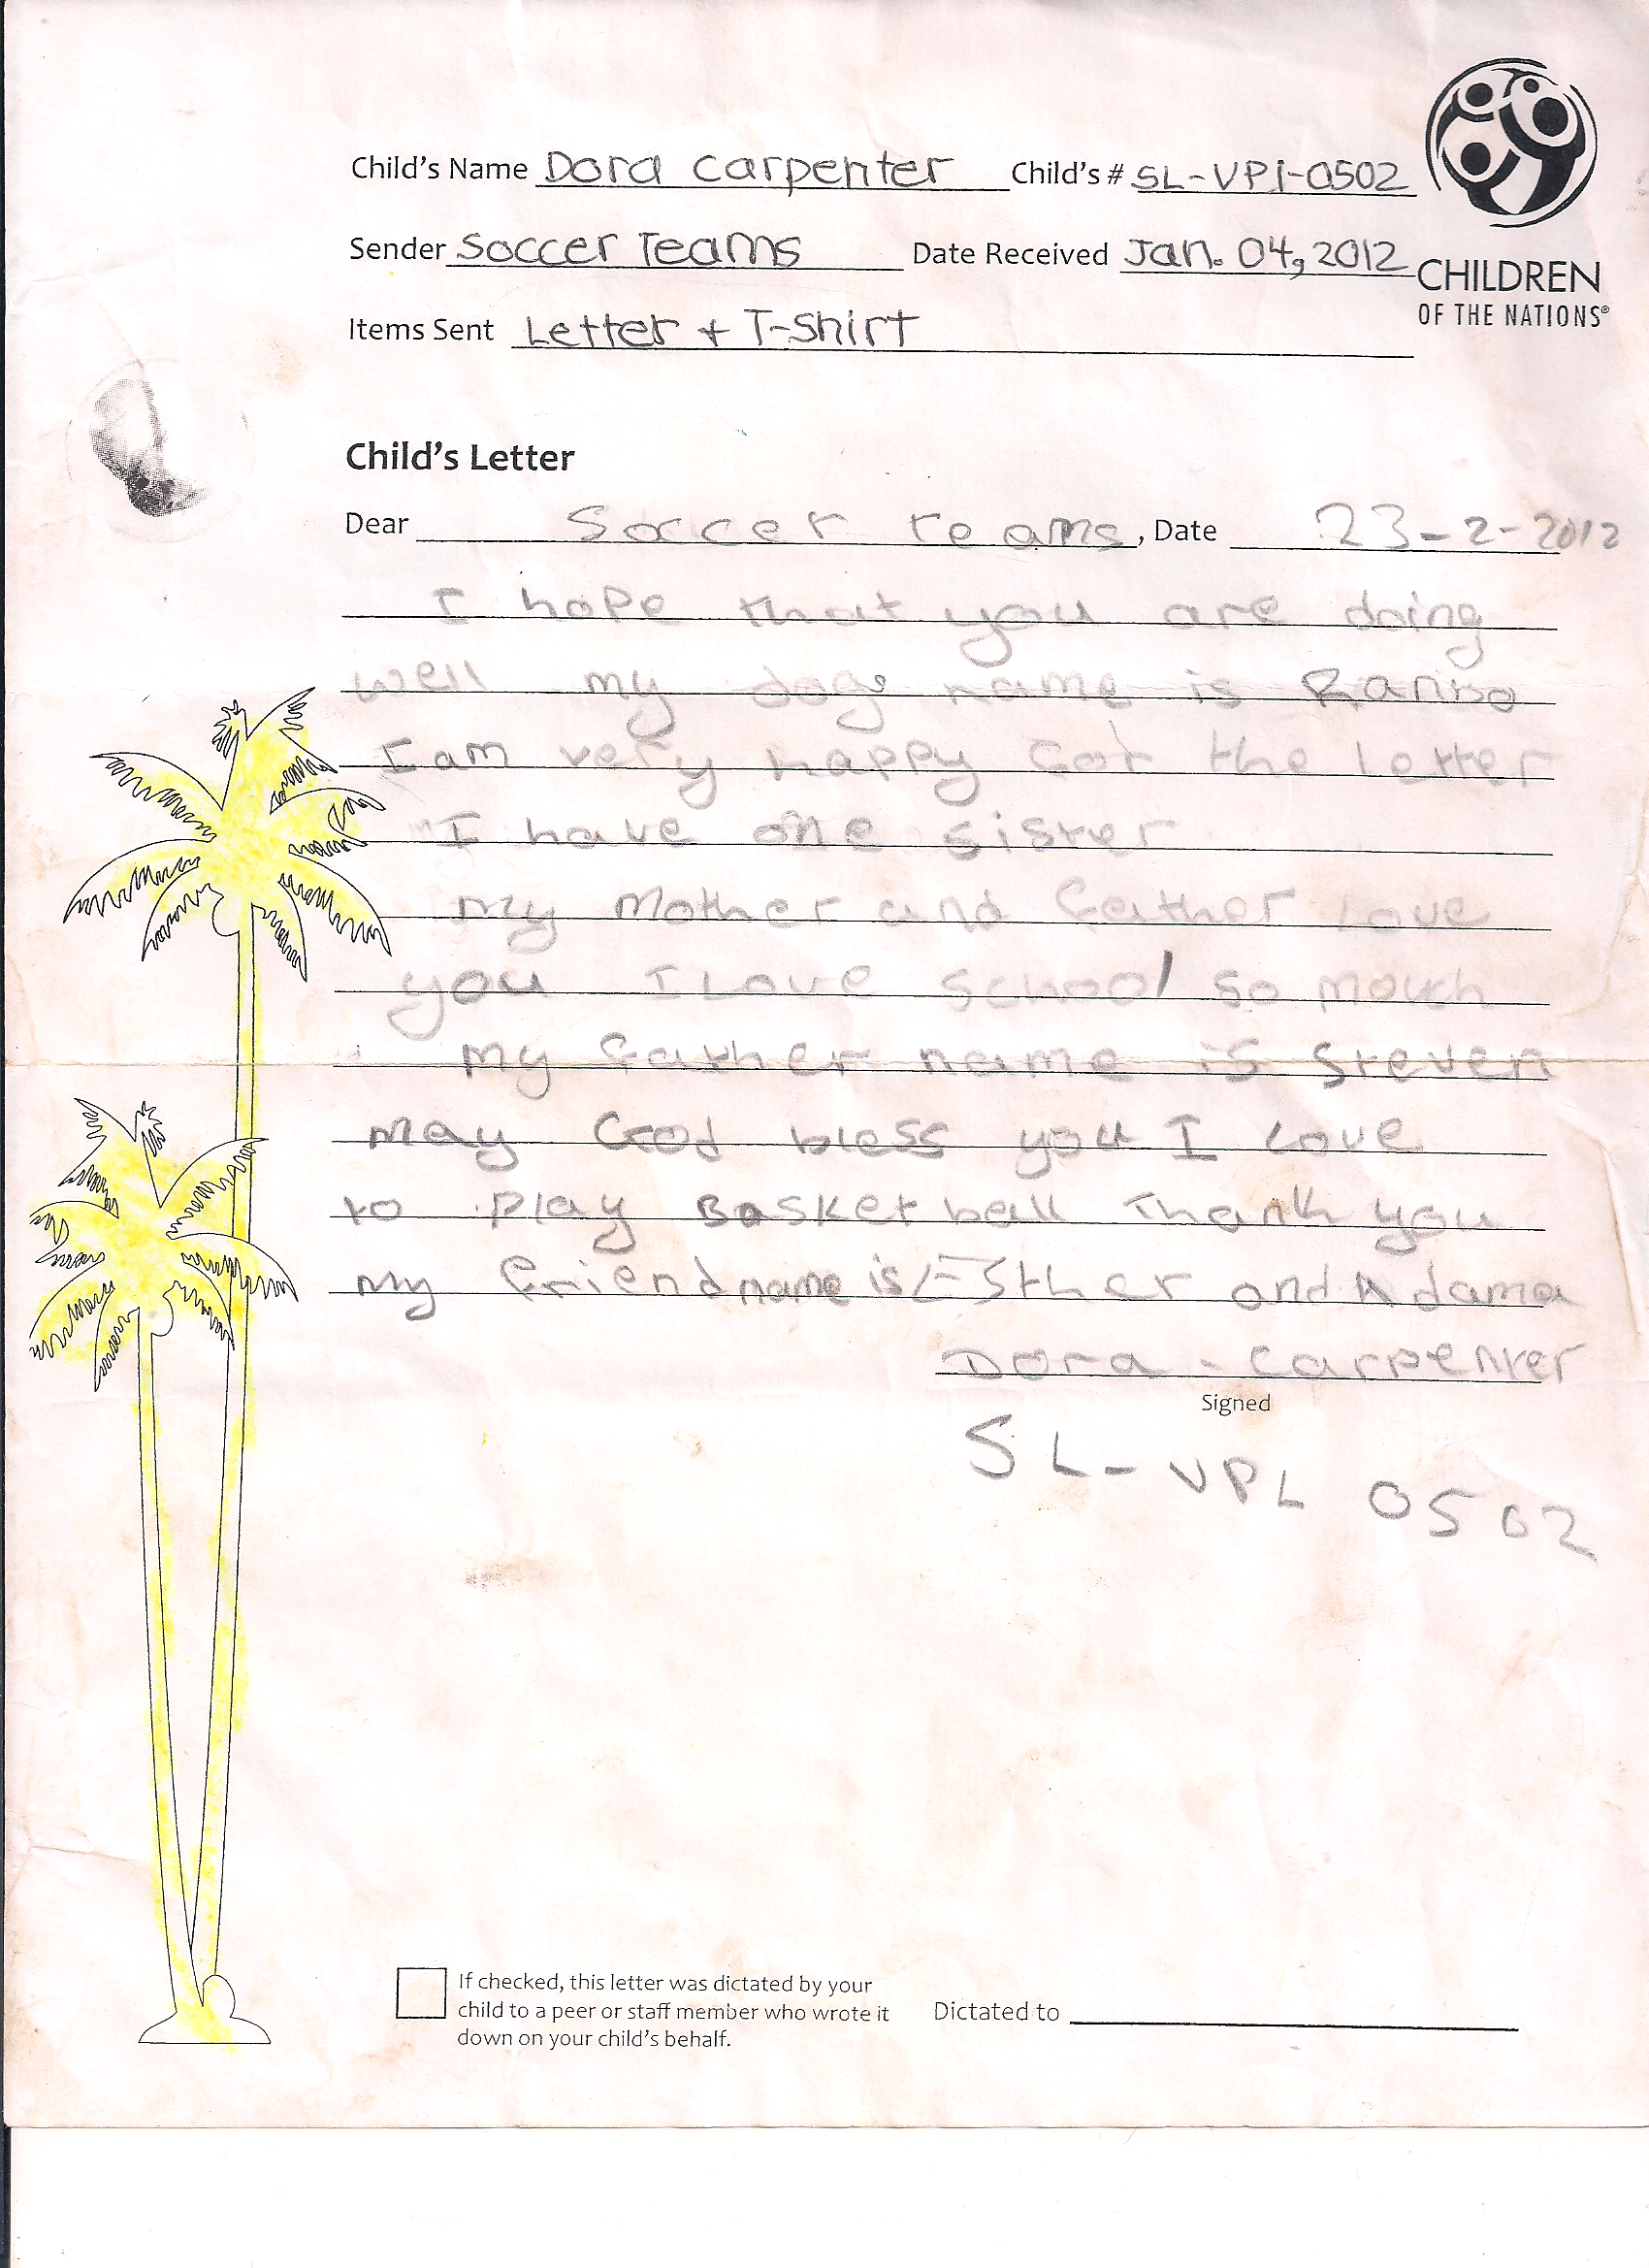 Child's Name Dora Carpenter Child's # SL-VPI-0502
Sender Soccer Teams Date Received Jan. 04, 2012
CHILDREN
OF THE NATIONS®
Items Sent Letter + T-Shirt
Child's Letter
Dear Soccer teams, Date 23-2-2012
I hope that you are doing
well my dog name is
I am very happy for the letter
I have one sister
my Mother and father love
you I Love school so mouch
my father name is Steven
may God bless you I love
to play Basket ball Thank you
my friend name is Esther and Adama
Dora - Carpenter
Signed
SL-VPL 0502
If checked, this letter was dictated by your
child to a peer or staff member who wrote it
down on your child's behalf.
Dictated to